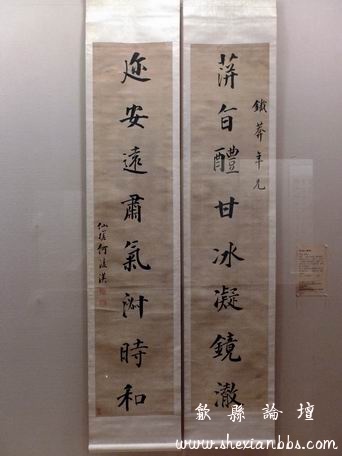 蓱旨醴甘冰凝鏡澈
鐵莽年兄
迩安遠肅氣淑時和
仙槎何凌漢
歙縣論壇
www.shexianbbs.com